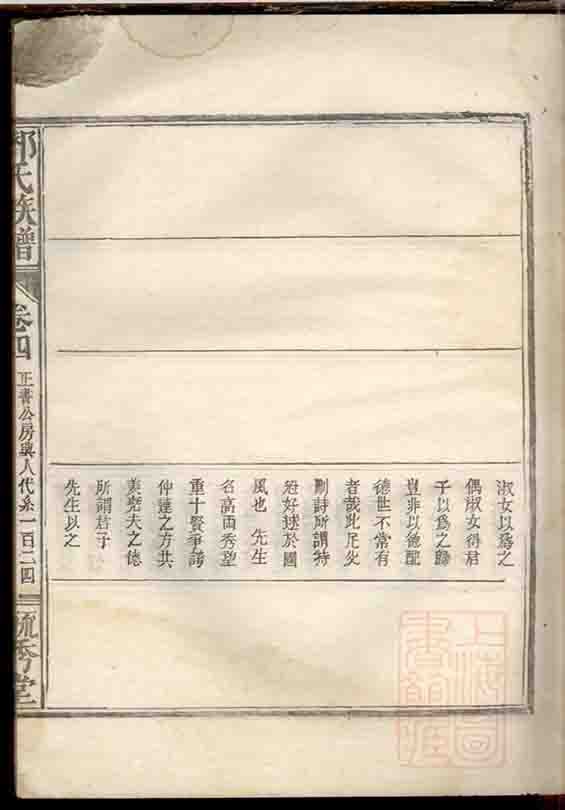 淑女以為之
偶淑女得君
子以為之歸
豈非以德配
德世不常有
者哉此足矣
刪詩所謂特
冠好逑於國
風也　先生
名高両秀望
重十賢爭誇
仲連之方共
羨堯夫之德
所謂君子
先生以之
氏族譜
卷四
正書公房興人代系一百二四
毓秀堂
上海圖書館藏